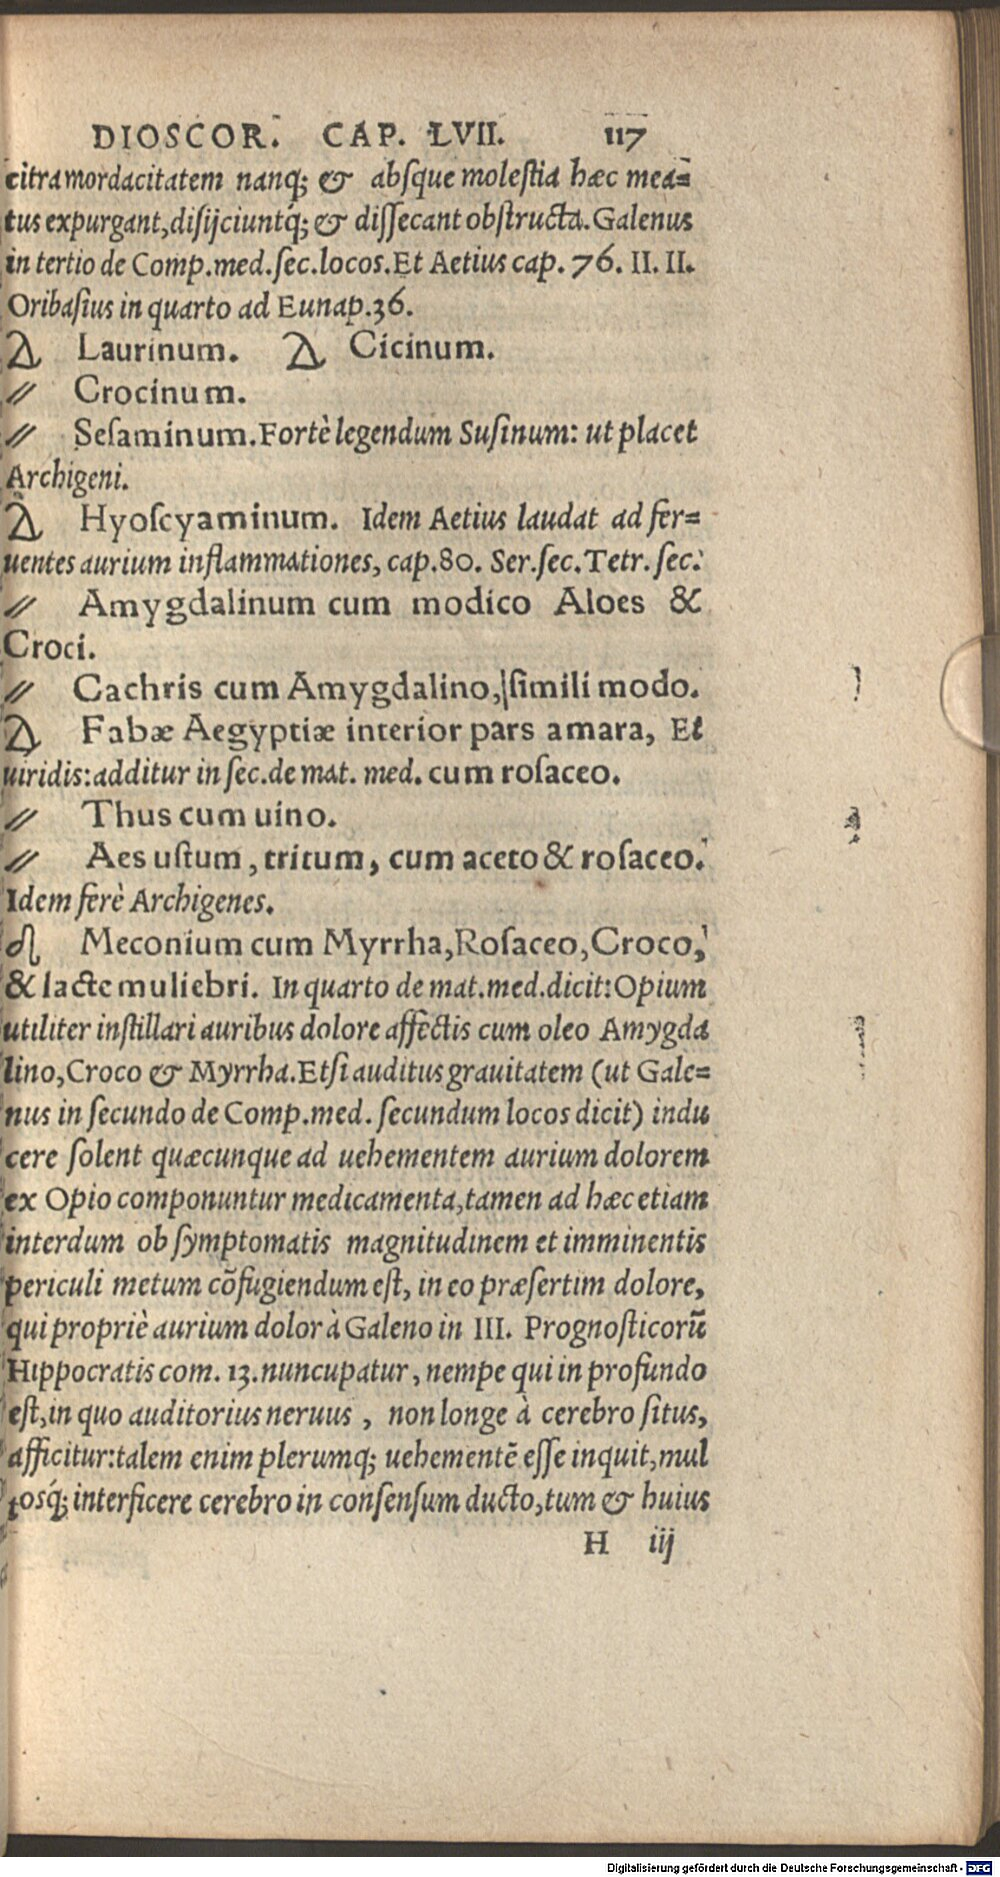 DIOSCOR. CAP. LVII. 117
citra mordacitatem nanq; & absque molestia hæc mea=
tus expurgant, disijciuntq́; & dissecant obstructa. Galenus
in tertio de Comp. med. sec. locos. Et Aetius cap. 76. II. II.
Oribasius in quarto ad Eunap. 36.
Laurinum. Cicinum.
〃 Crocinum.
〃 Sesaminum. Fortè legendum Susinum: ut placet
Archigeni.
Hyoscyaminum. Idem Aetius laudat ad fer=
uentes aurium inflammationes, cap. 80. Ser. sec. Tetr. sec.
〃 Amygdalinum cum modico Aloes &
Croci.
〃 Cachris cum Amygdalino, simili modo.
Fabæ Aegyptiæ interior pars amara, Et
uiridis: additur in sec. de mat. med. cum rosaceo.
〃 Thus cum uino.
〃 Aes ustum, tritum, cum aceto & rosaceo.
Idem ferè Archigenes.
Meconium cum Myrrha, Rosaceo, Croco,
& lacte muliebri. In quarto de mat. med. dicit: Opium
utiliter instillari auribus dolore affectis cum oleo Amygda
lino, Croco & Myrrha. Etsi auditus grauitatem (ut Gale=
nus in secundo de Comp. med. secundum locos dicit) indu
cere solent quæcunque ad uehementem aurium dolorem
ex Opio componuntur medicamenta, tamen ad hæc etiam
interdum ob symptomatis magnitudinem et imminentis
periculi metum cõfugiendum est, in eo præsertim dolore,
qui propriè aurium dolor à Galeno in III. Prognosticorũ
Hippocratis com. 13. nuncupatur, nempe qui in profundo
est, in quo auditorius neruus, non longe à cerebro situs,
afficitur: talem enim plerumq; uehementẽ esse inquit, mul
tosq́; interficere cerebro in consensum ducto, tum & huius
H iij
Digitalisierung gefördert durch die Deutsche Forschungsgemeinschaft - DFG